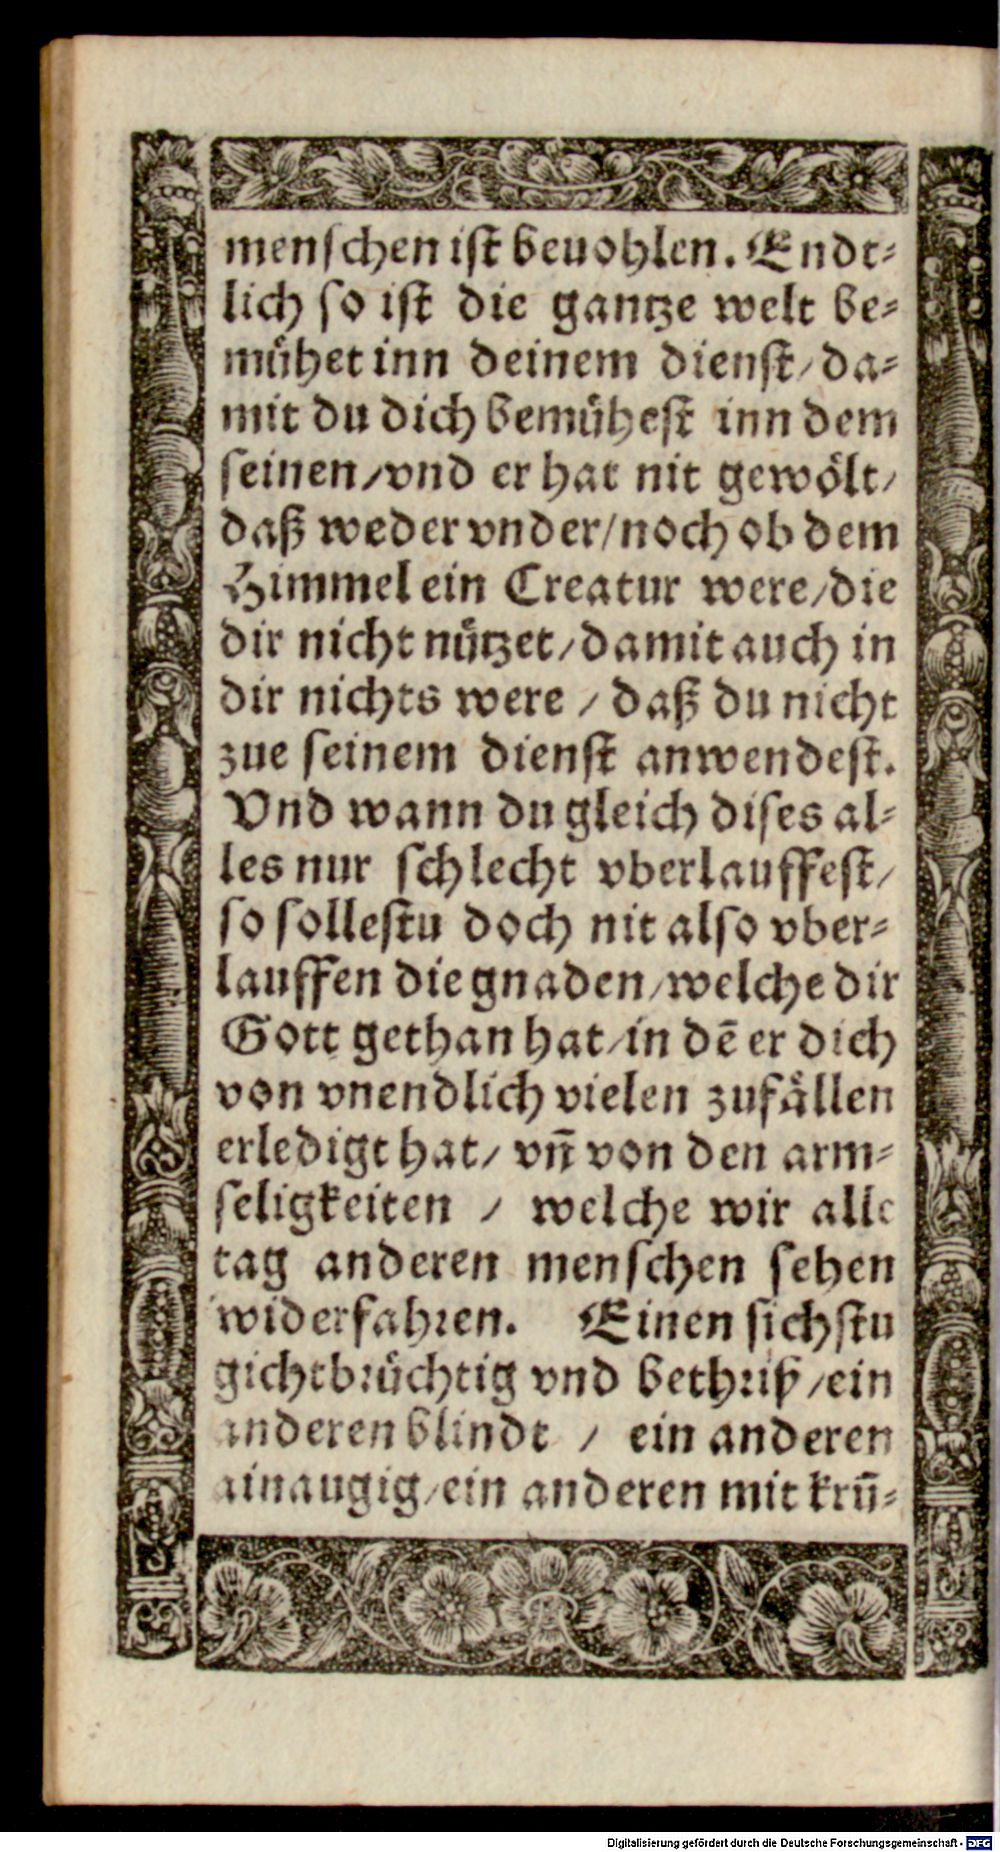 menschen ist beuohlen. Endt⸗
lich so ist die gantze welt be⸗
mühet inn deinem dienst/da⸗
mit du dich bemühest inn dem
seinen/vnd er hat nit gewölt/
daß weder vnder/noch ob dem
Himmel ein Creatur were/die
dir nicht nützet/damit auch in
dir nichts were / daß du nicht
zue seinem dienst anwendest.
Vnd wann du gleich dises al⸗
les nur schlecht vberlauffest/
so sollestu doch nit also vber⸗
lauffen die gnaden/welche dir
Gott gethan hat/in dē er dich
von vnendlich vielen zufällen
erledigt hat/ vn̄ von den arm⸗
seligkeiten / welche wir alle
tag anderen menschen sehen
widerfahren. Einen sichstu
gichtbrüchtig vnd bethriß/ein
anderen blindt / ein anderen
ainaugig/ein anderen mit krū⸗
Digitalisierung gefördert durch die Deutsche Forschungsgemeinschaft - DFG